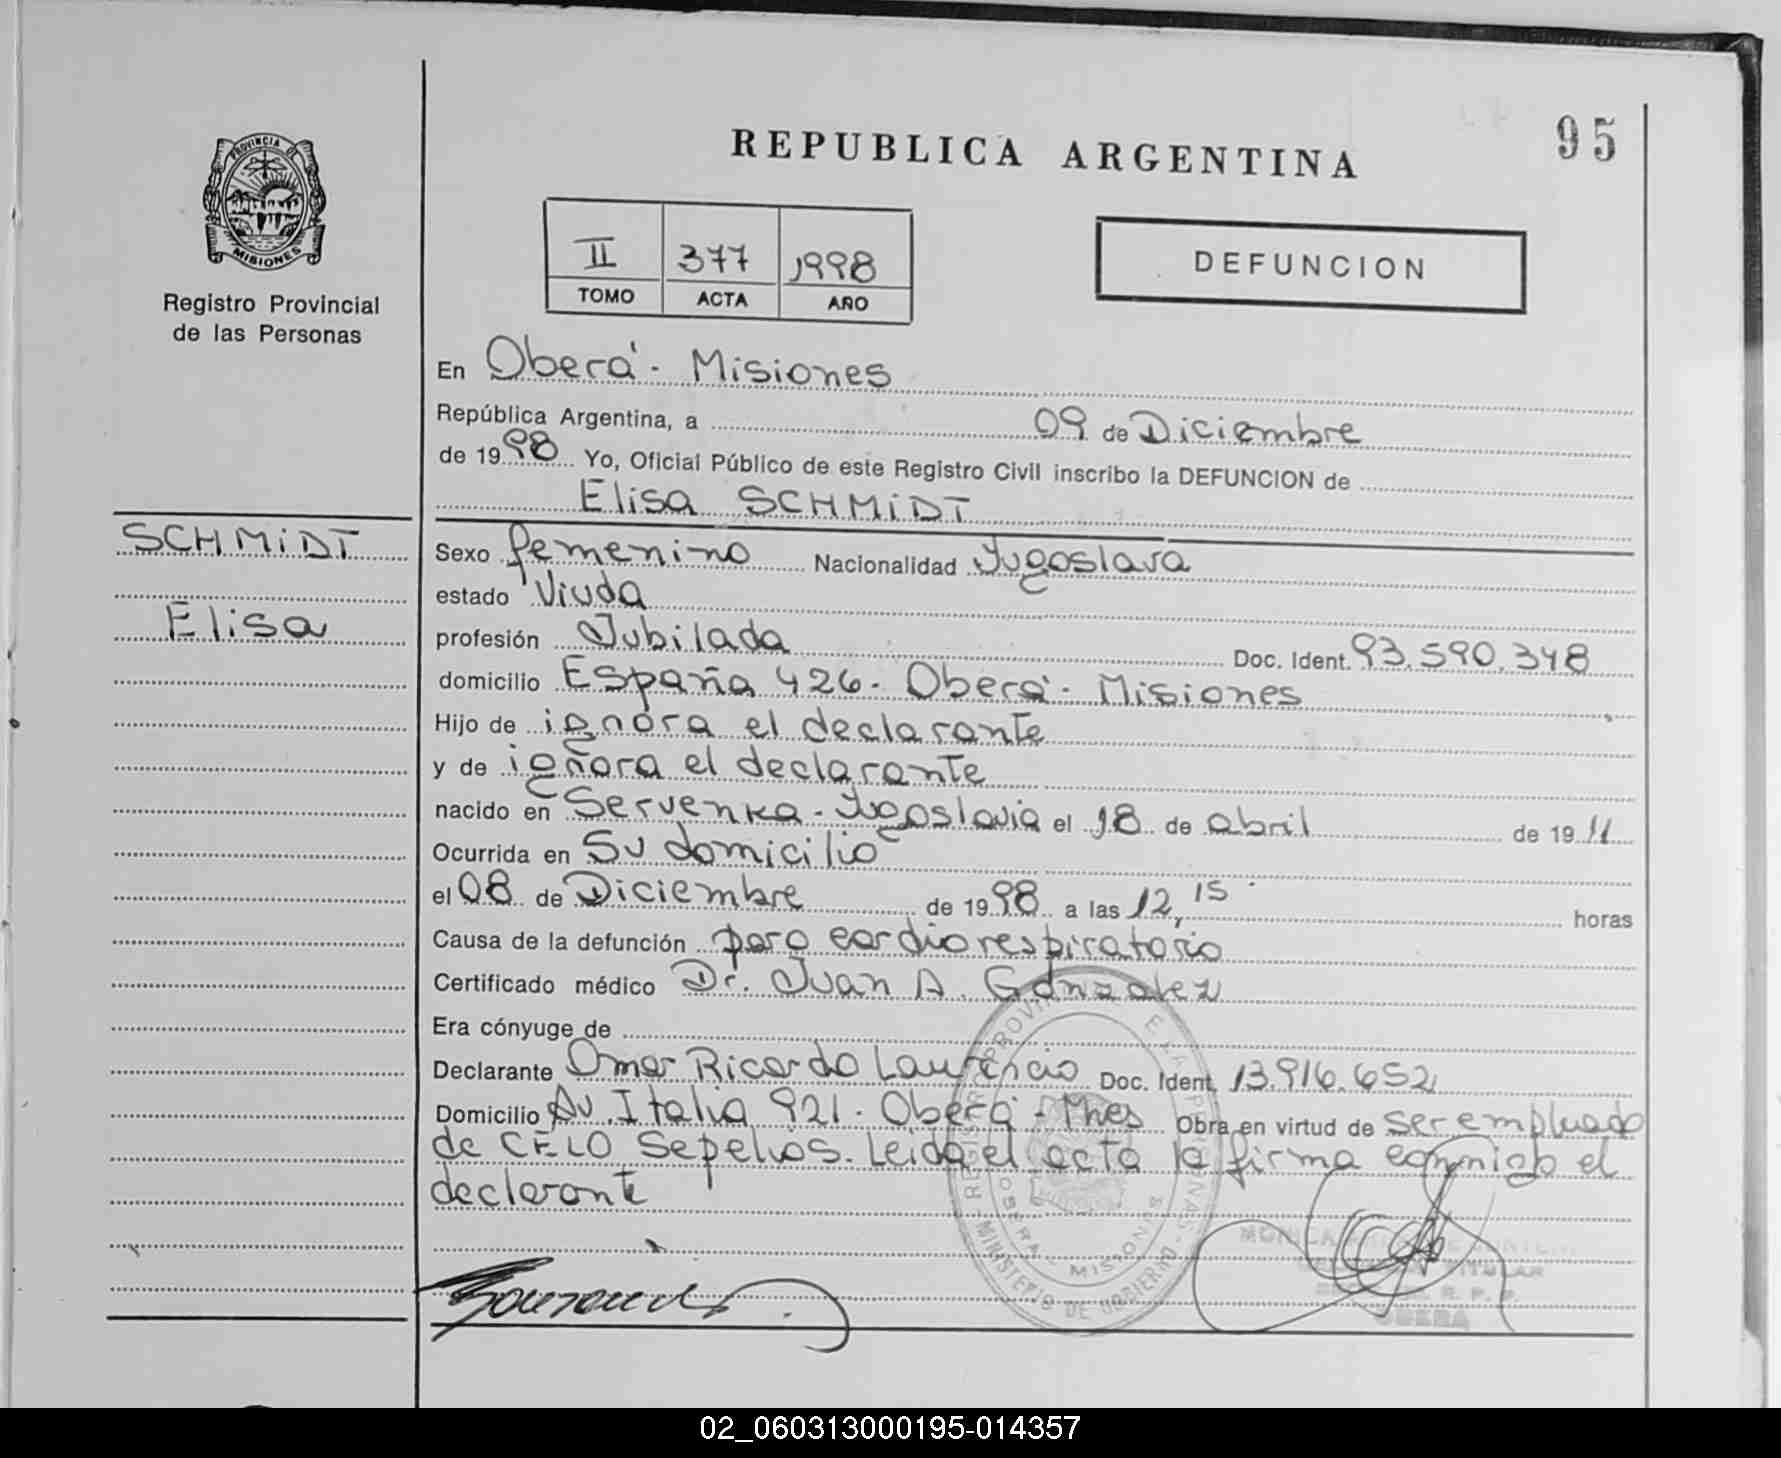 95
REPUBLICA ARGENTINA
PROVINCIA DE
MISIONES
Registro Provincial
de las Personas
II 377 1998
TOMO ACTA AÑO
DEFUNCION
En Oberá - Misiones
República Argentina, a 09 de Diciembre
de 1998 Yo, Oficial Público de este Registro Civil inscribo la DEFUNCION de
Elisa SCHMIDT
SCHMIDT
Elisa
Sexo femenino Nacionalidad Yugoslava
estado Viuda
profesión Jubilada Doc. Ident. 93.590.348
domicilio España 426 - Oberá - Misiones
Hijo de ignora el declarante
y de ignora el declarante
nacido en Servenka - Yugoslavia el 18 de abril de 1911
Ocurrida en Su domicilio
el 08 de Diciembre de 1998 a las 12,15 horas
Causa de la defunción paro cardiorespiratorio
Certificado médico Dr. Juan A. Gonzalez
Era cónyuge de
Declarante Omar Ricardo Laurencio Doc. Ident. 13.916.652
Domicilio Av. Italia 921 - Oberá - Mnes Obra en virtud de ser empleado
de CELO Sepelios. Leida el acta la firma conmigo el
declarante
MISIONES
MINISTERIO DE GOBIERNO
MONICA
TITULAR
R. P. P.
OBERA
02_060313000195-014357